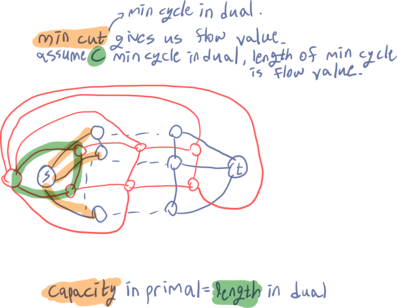 min cycle in dual.
min cut gives us flow value.
assume C min cycle in dual, length of min cycle
is flow value.
s
t
capacity in primal = length in dual